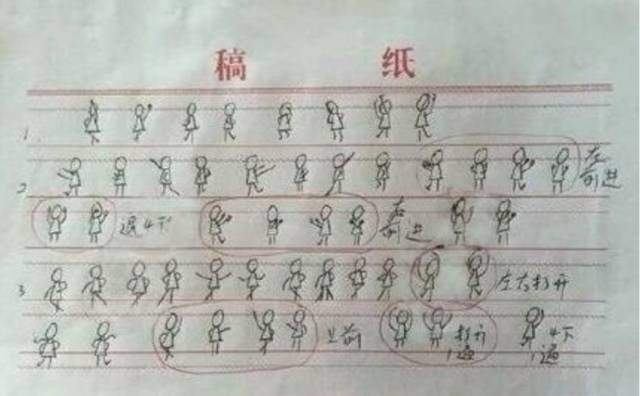 稿 纸
1
2 左前进
退4下 右前进
3 左右打开
上前 打开1遍 4下1遍